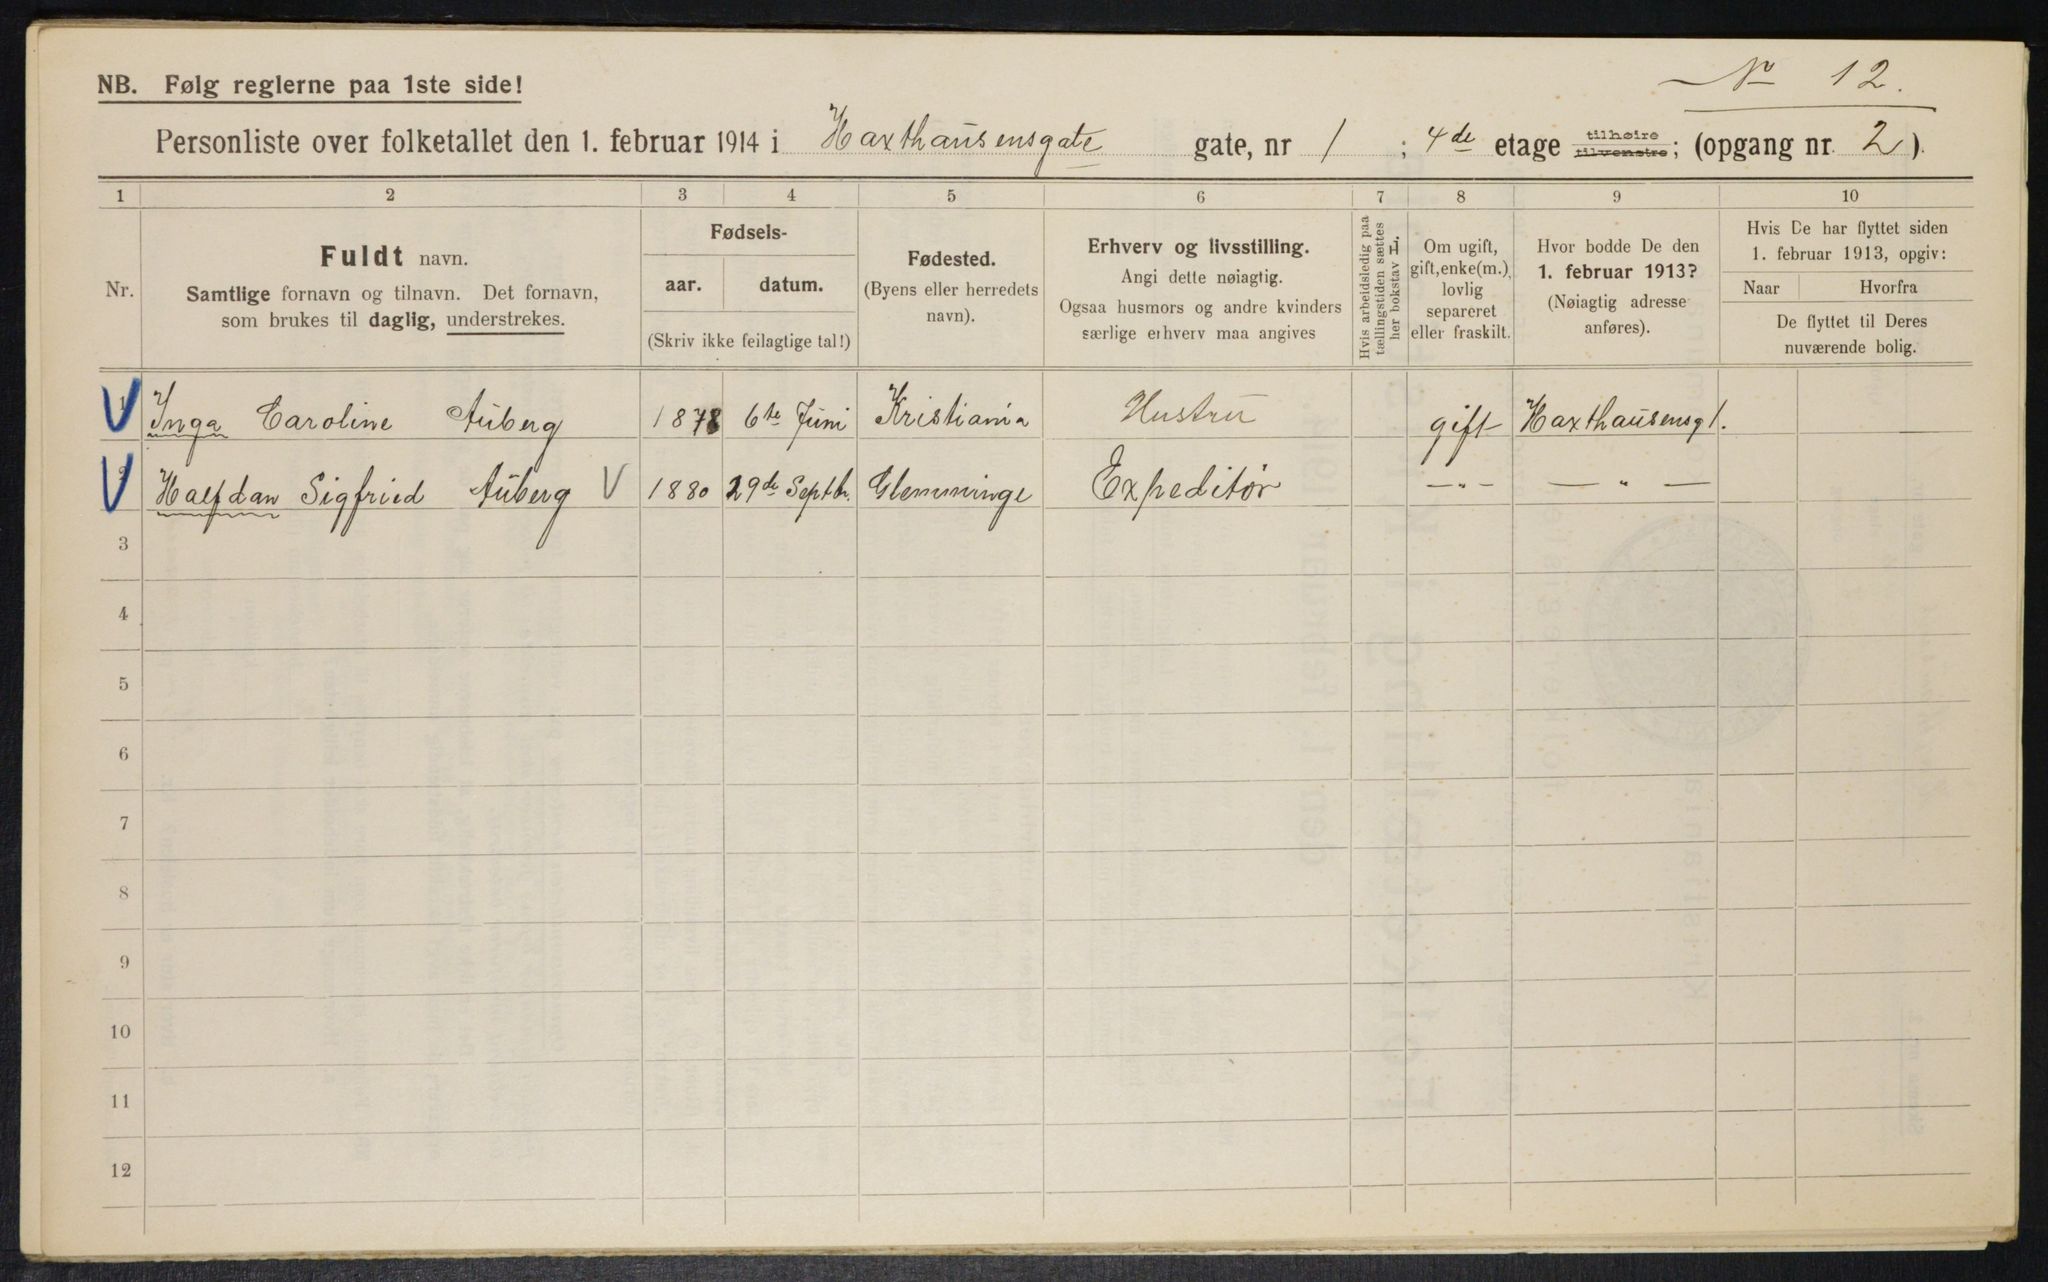 No 12.
NB. Følg reglerne paa 1ste side!
Personliste over folketallet den 1. februar 1914 i Haxthausensgate gate, nr 1 ; 4de etage tilhøire tilvenstre; (opgang nr. 2).
1 2 3 4 5 6 7 8 9 10
Nr.
Fuldt navn.
Samtlige fornavn og tilnavn. Det fornavn,
som brukes til daglig, understrekes.
Fødsels-
aar. datum.
(Skriv ikke feilagtige tal!)
Fødested.
(Byens eller herredets
navn).
Erhverv og livsstilling.
Angi dette nøiagtig.
Ogsaa husmors og andre kvinders
særlige erhverv maa angives
Hvis arbeidsledig paa
tællingstiden sættes
her bokstav L.
Om ugift,
gift, enke(m.),
lovlig
separeret
eller fraskilt.
Hvor bodde De den
1. februar 1913?
(Nøiagtig adresse
anføres).
Hvis De har flyttet siden
1. februar 1913, opgiv:
Naar Hvorfra
De flyttet til Deres
nuværende bolig.
1 Inga Caroline Auberg 1878 6te Juni Kristiania Hustru gift Haxthausensg 1.
2 Halfdan Sigfried Auberg V 1880 29de Septbr. Glemminge Expeditør —"— — " —
3
4
5
6
7
8
9
10
11
12